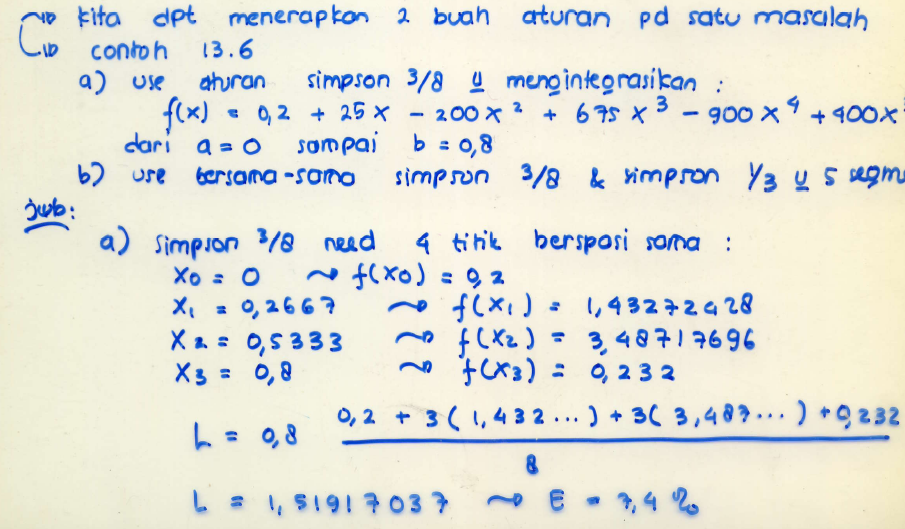 kita dpt menerapkan 2 buah aturan pd satu masalah
contoh 13.6
a) use aturan simpson 3/8 u mengintegrasikan :
f(x) = 0,2 + 25x - 200x² + 675x³ - 900x⁴ + 400x
dari a = 0 sampai b = 0,8
b) use bersama-sama simpson 3/8 & simpson 1/3 u 5 segm
jwb:
a) simpson 3/8 need 4 titik berspasi sama :
X₀ = 0 ~> f(X₀) = 0,2
X₁ = 0,2667 ~> f(X₁) = 1,43272428
X₂ = 0,5333 ~> f(X₂) = 3,48717696
X₃ = 0,8 ~> f(X₃) = 0,232
L = 0,8 0,2 + 3(1,432...) + 3(3,487...) + 0,232
8
L = 1,51917037 ~> E = 7,4 %